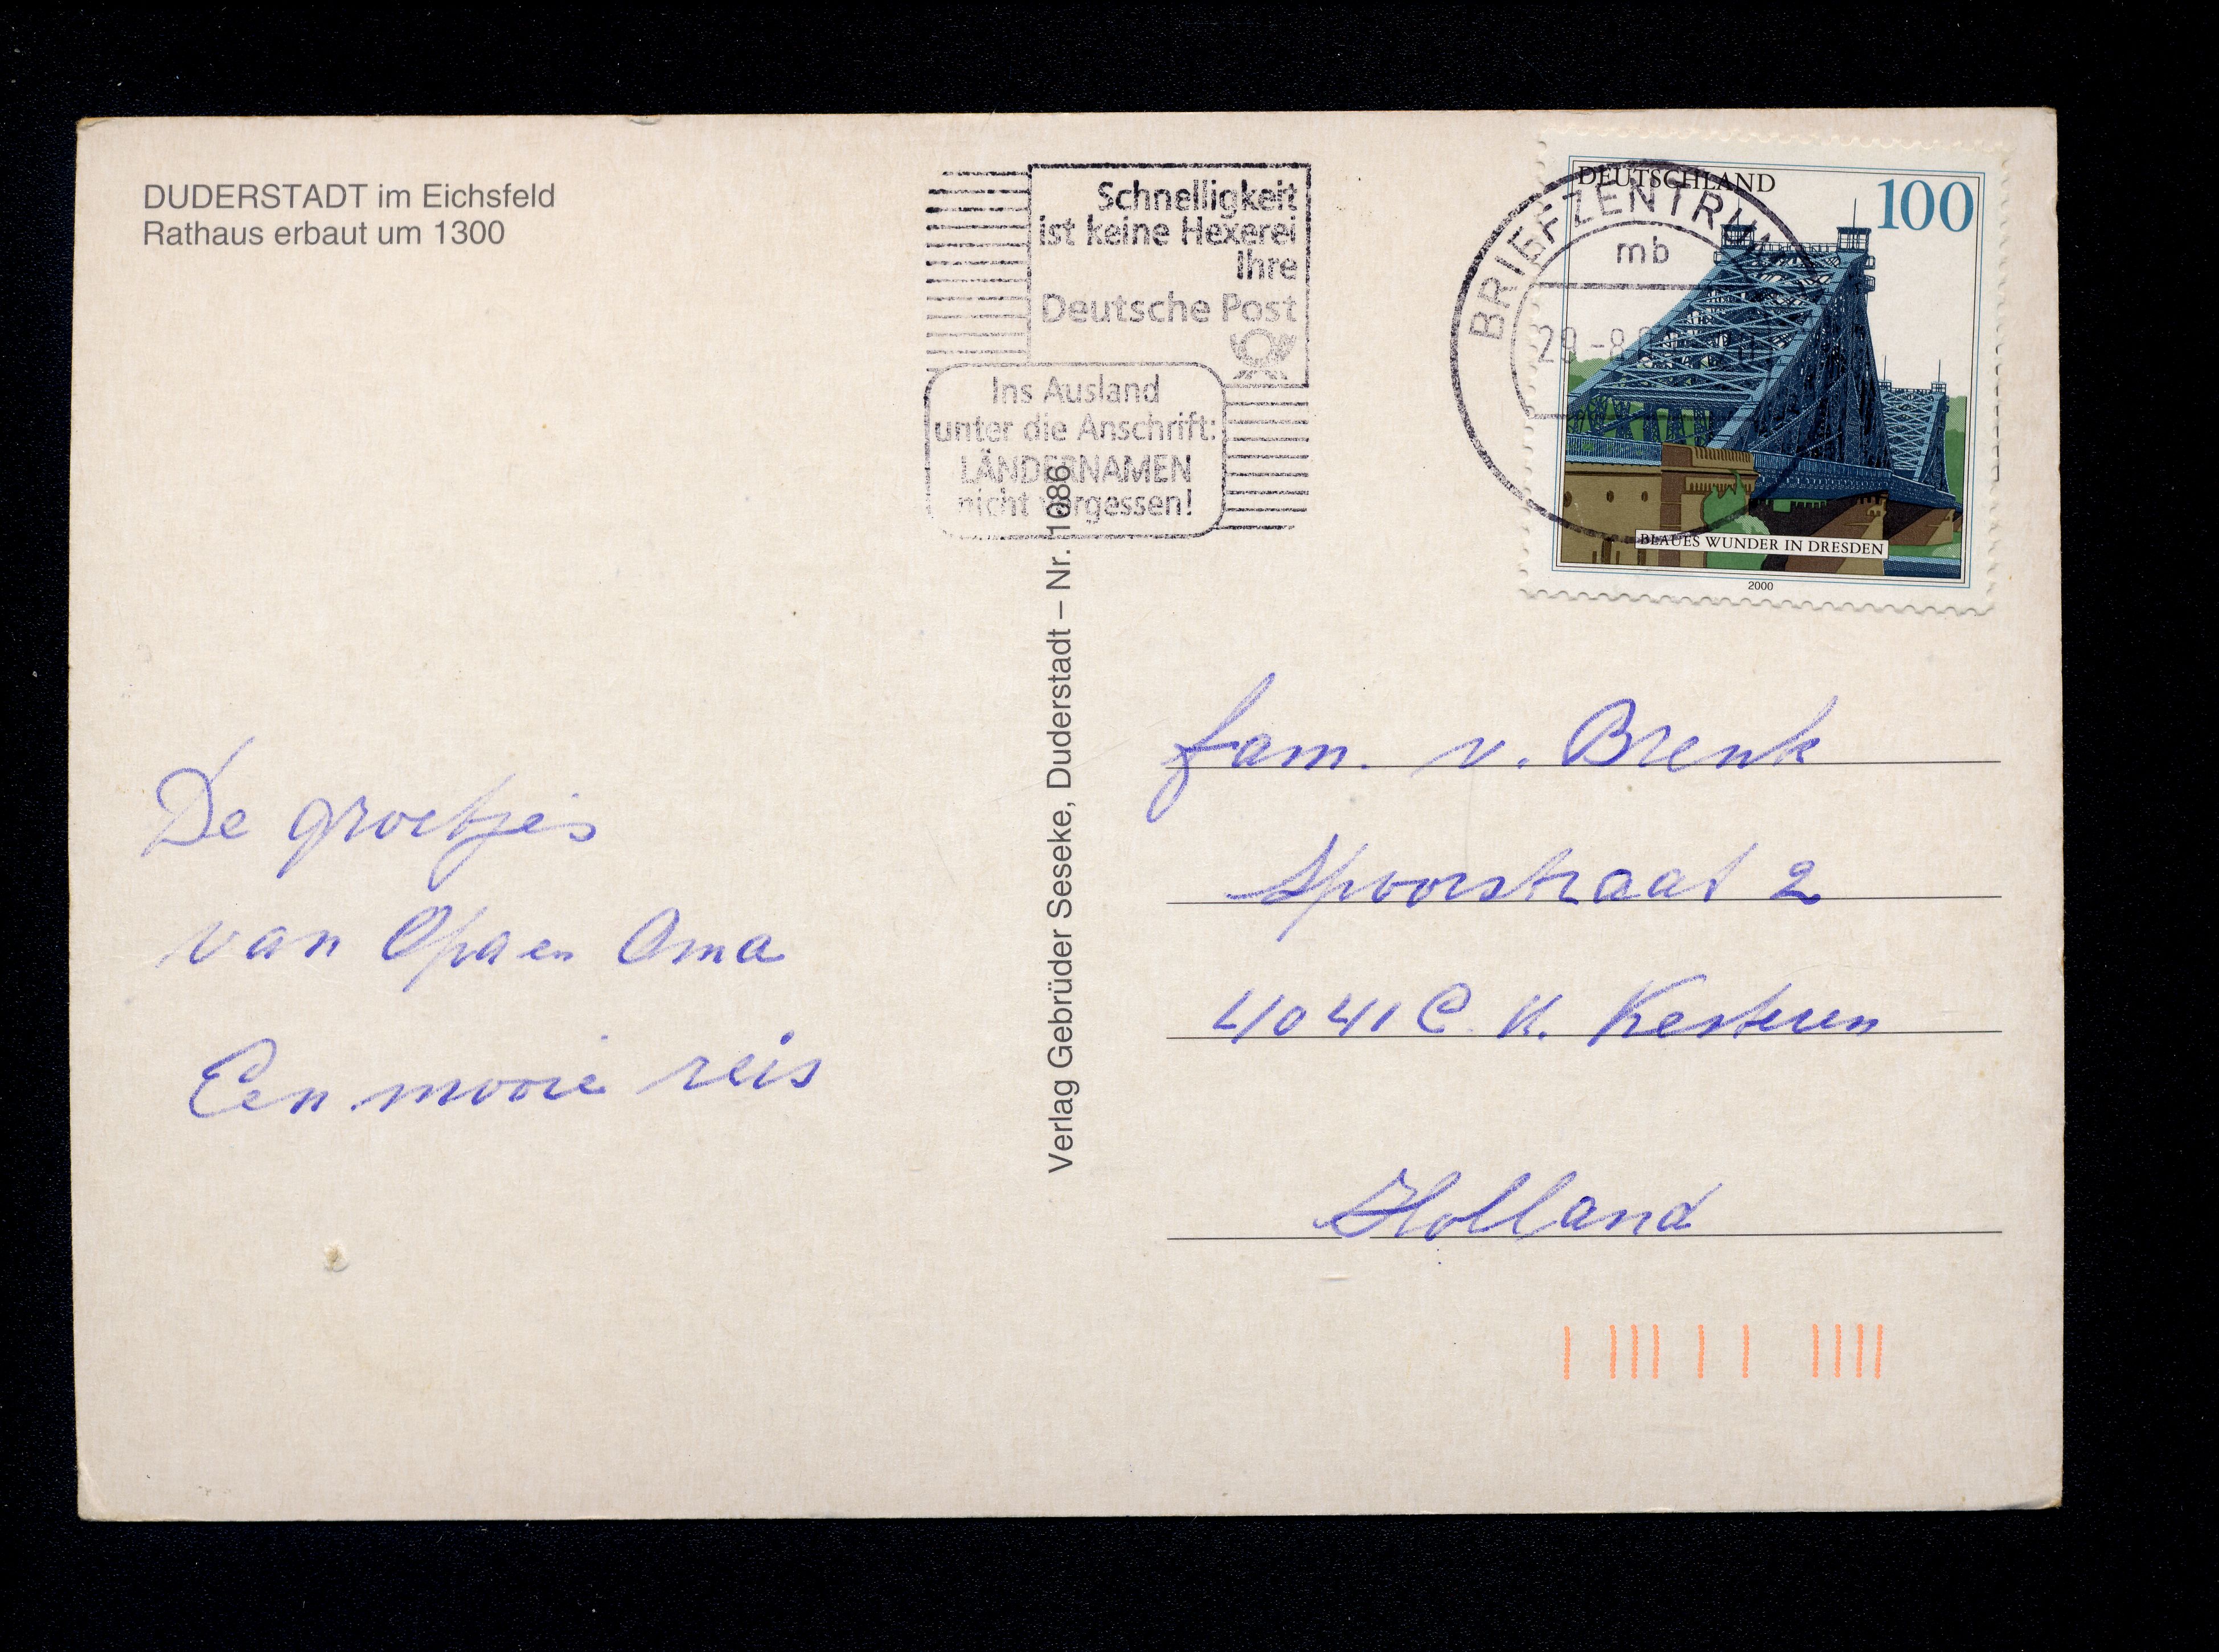 DUDERSTADT im Eichsfeld
Rathaus erbaut um 1300
De groetjes
van Opa en Oma
Een mooie reis
Verlag Gebrüder Seseke, Duderstadt – Nr. 11086
Schnelligkeit
ist keine Hexerei
Ihre
Deutsche Post
Ins Ausland
unter die Anschrift:
LÄNDERNAMEN
nicht vergessen!
BRIEFZENTRUM
mb
29.-8.
DEUTSCHLAND
100
BLAUES WUNDER IN DRESDEN
2000
fam. v. Brenk
Spoorstraat 2
4041 C.K. Kesteren
Holland